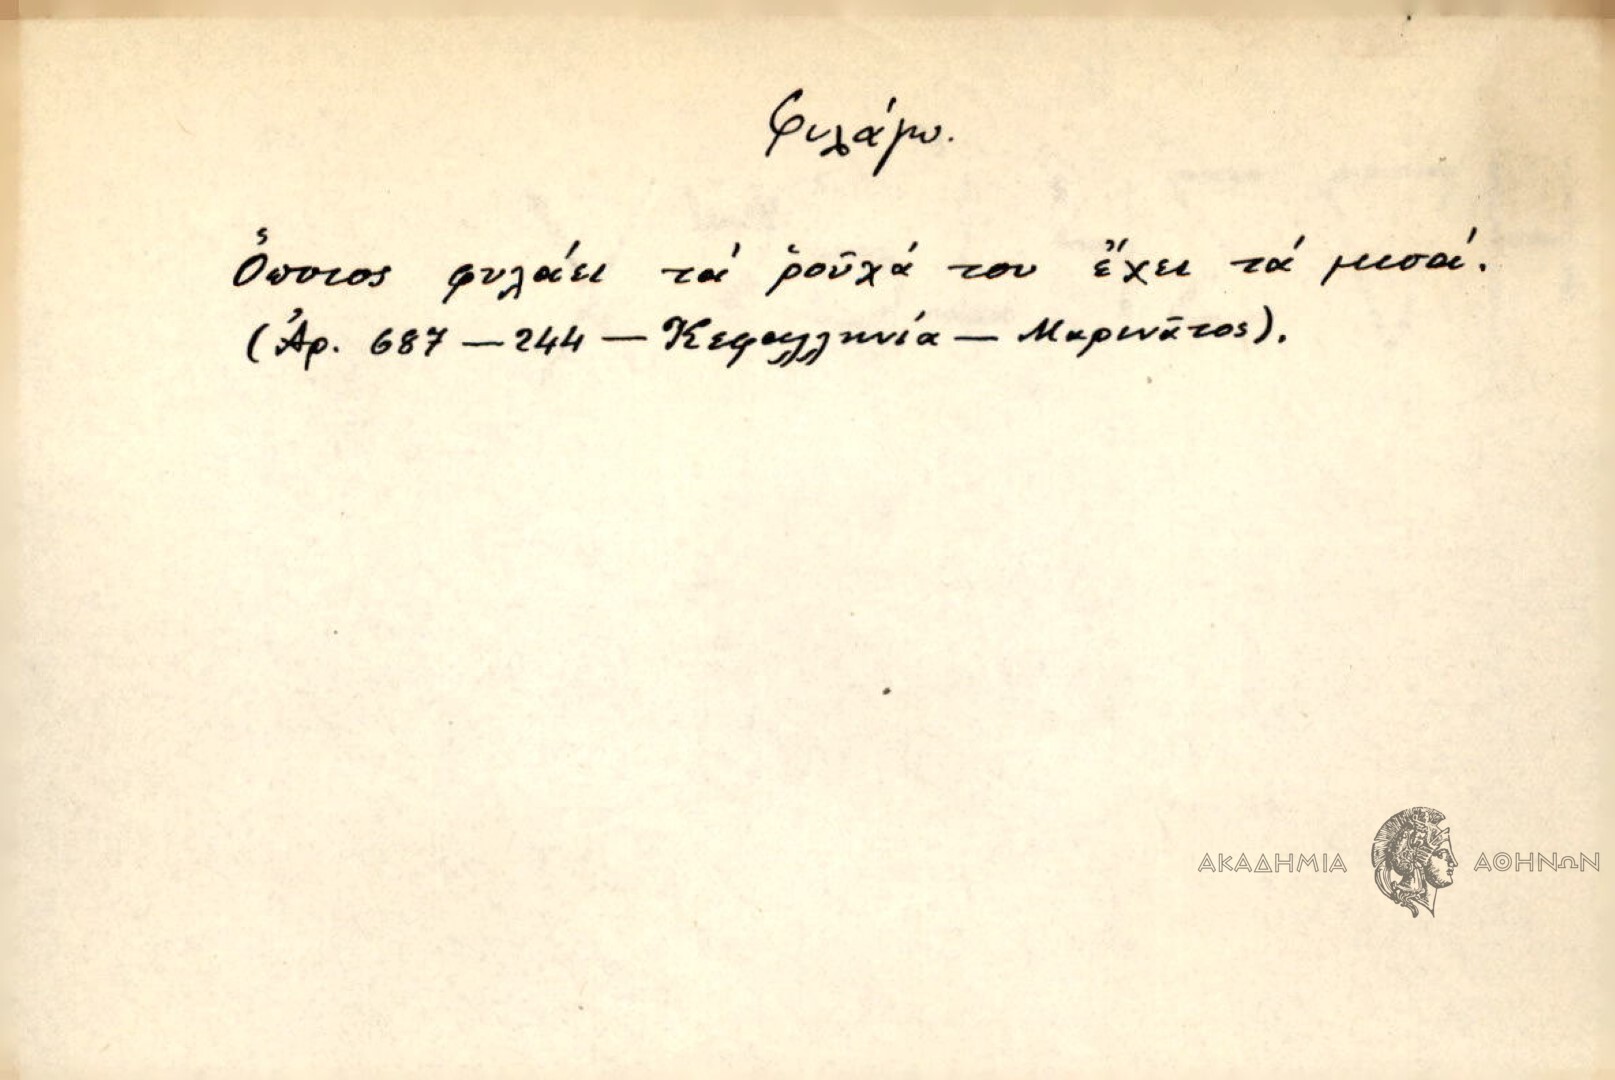 Φυλάγω.
Ὅποιος φυλάει τά ῥοῦχά του ἔχει τά μισά.
(Ἀρ. 687 — 244 — Κεφαλληνία — Μαρινᾶτος).
ΑΚΑΔΗΜΙΑ ΑΘΗΝΩΝ